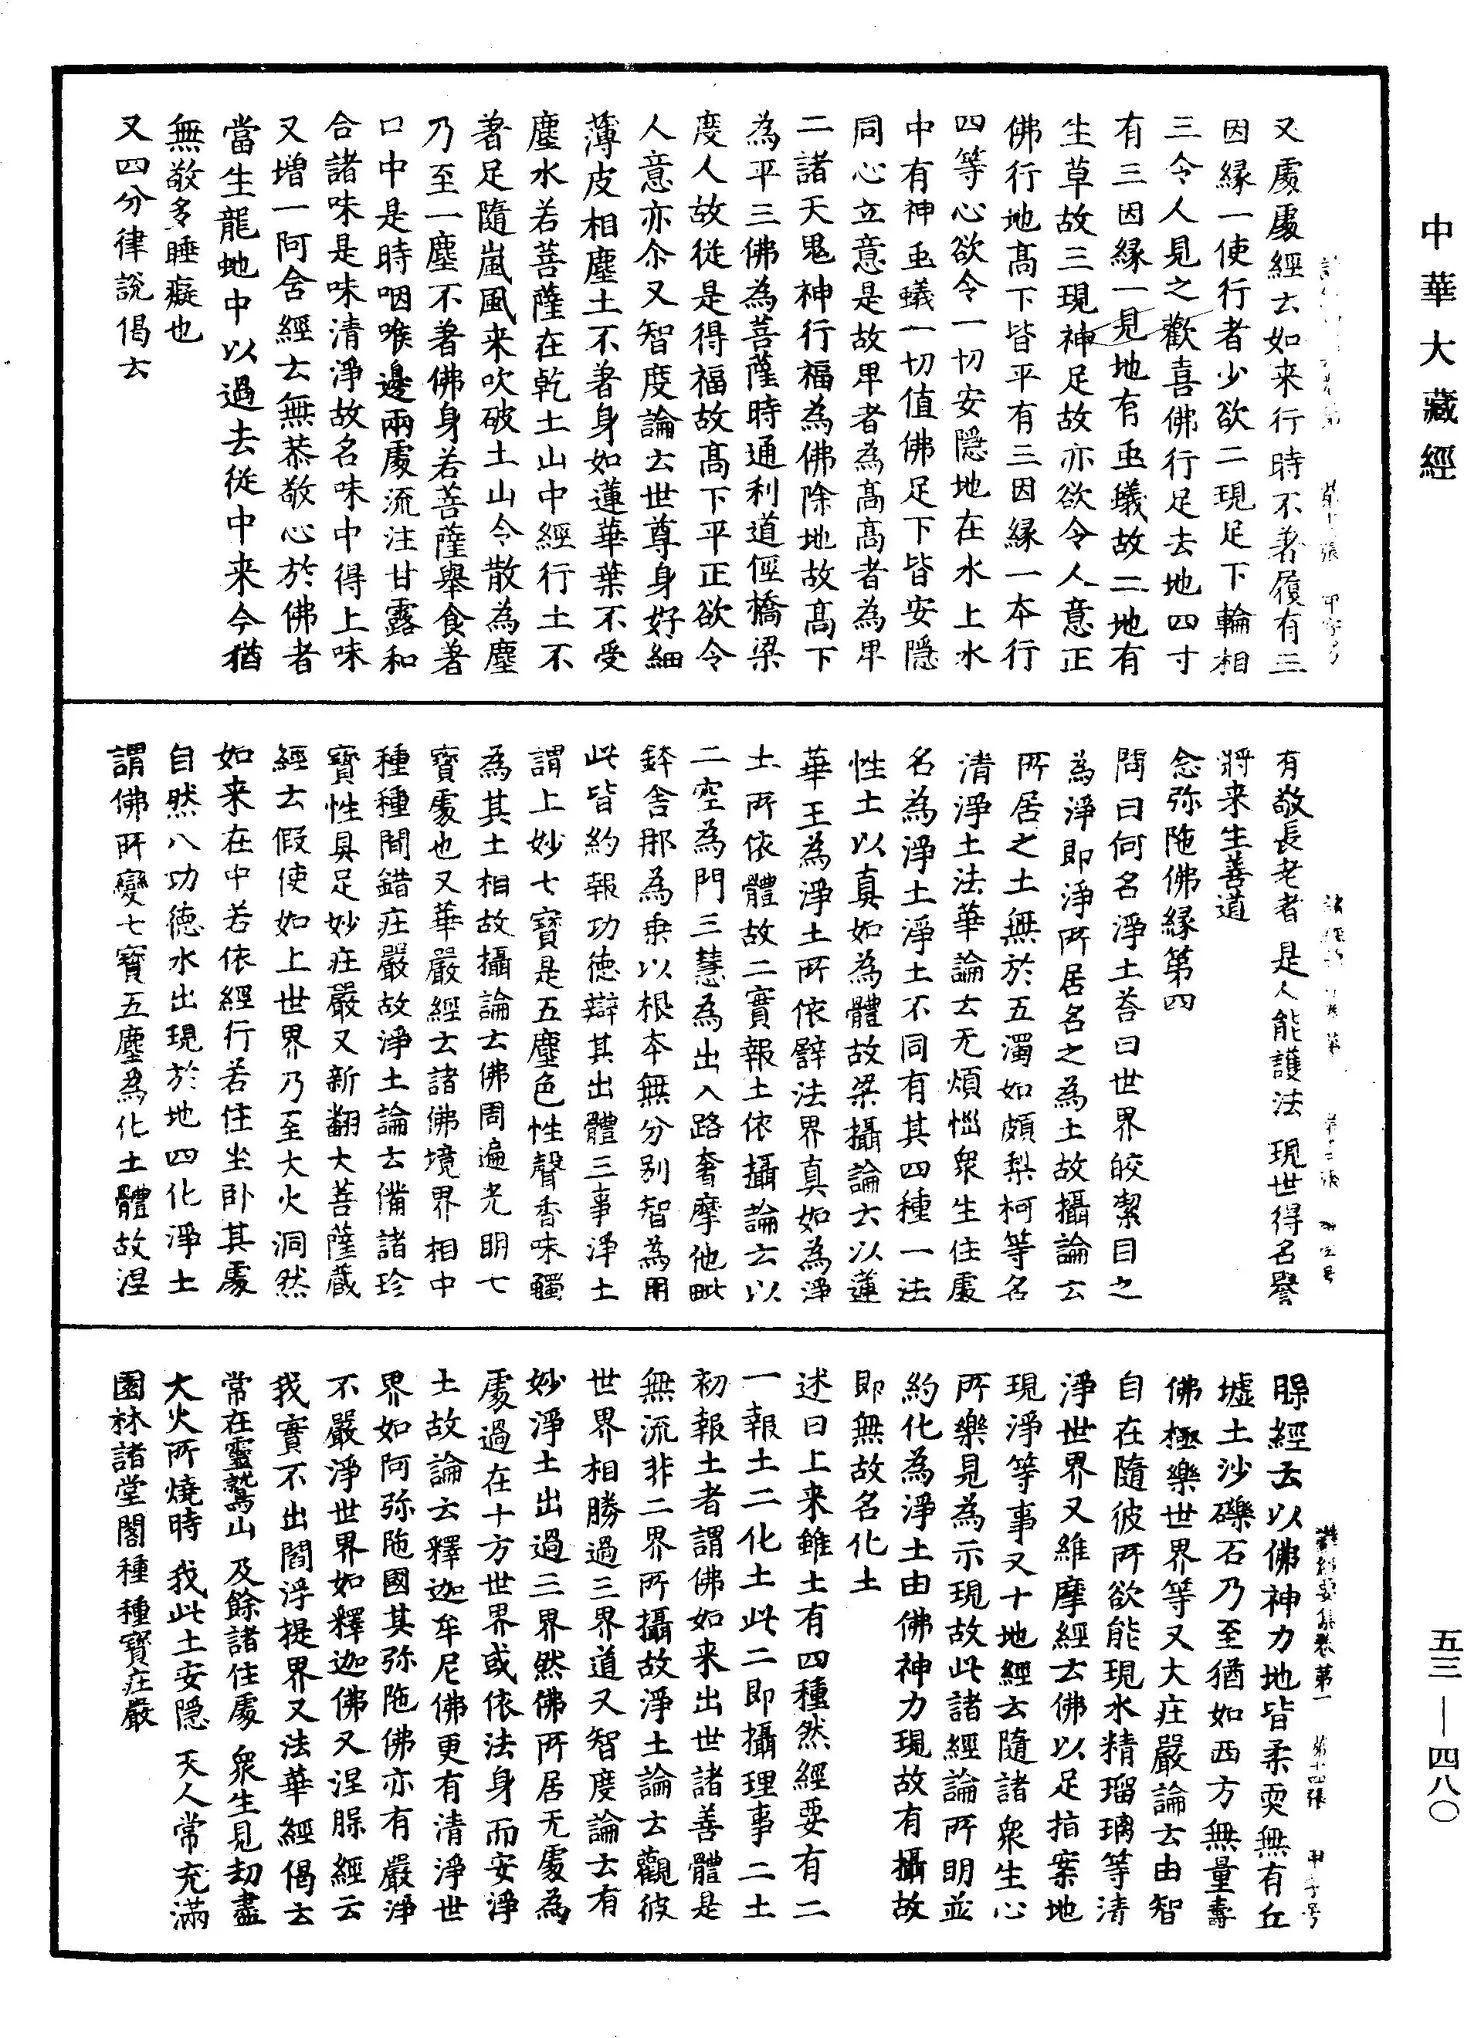 中華大藏經
五三—四八〇
又處處經云如来行時不著履有三
因緣一使行者少欲二現足下輪相
三令人見之歡喜佛行足去地四寸
有三因緣一見地有虫蟻故二地有
生草故三現神足故亦欲令人意正
佛行地髙下皆平有三因緣一本行
四等心欲令一切安隱地在水上水
中有神虫蟻一切值佛足下皆安隱
同心立意是故早者為髙髙者為早
二諸天鬼神行福為佛除地故髙下
為平三佛為菩薩時通利道徑橋梁
度人故從是得福故髙下平正欲令
人意亦尒又智度論云世尊身好細
薄皮相塵土不著身如蓮華葉不受
塵水若菩薩在乾土山中經行土不
著足隨嵐風来吹破土山令散為塵
乃至一塵不著佛身若菩薩舉食著
口中是時咽喉邊兩處流注甘露和
合諸味是味清淨故名味中得上味
又增一阿含經云無恭敬心於佛者
當生龍虵中以過去從中来今猶
無敬多睡癡也
又四分律說偈云
有敬長老者 是人能護法 現世得名譽
將来生善道
念弥陁佛緣第四
問曰何名淨土荅曰世界皎潔目之
為淨即淨所居名之為土故攝論云
所居之土無於五濁如頗梨柯等名
清淨土法華論云无煩惱衆生住處
名為淨土淨土不同有其四種一法
性土以真如為體故梁攝論云以蓮
華王為淨土所依譬法界真如為淨
土所依體故二實報土依攝論云以
二空為門三慧為出入路奢摩他毗
鉢舍那為乗以根本無分別智為用
此皆約報功德辯其出體三事淨土
謂上妙七寶是五塵色性聲香味觸
為其土相故攝論云佛周遍光明七
寶處也又華嚴經云諸佛境界相中
種種間錯莊嚴故淨土論云備諸珍
寶性具足妙莊嚴又新翻大菩薩藏
經云假使如上世界乃至大火洞然
如来在中若依經行若住坐卧其處
自然八功德水出現於地四化淨土
謂佛所變七寶五塵為化土體故涅
諸經要集卷第一 第十四張 甲字号
縣經云以佛神力地皆柔耎無有丘
墟土沙礫石乃至猶如西方無量壽
佛極樂世界等又大莊嚴論云由智
自在隨彼所欲能現水精瑠璃等清
淨世界又維摩經云佛以足指案地
現淨等事又十地經云隨諸衆生心
所樂見為示現故此諸經論所明並
約化為淨土由佛神力現故有攝故
即無故名化土
述曰上来雖土有四種然經要有二
一報土二化土此二即攝理事二土
初報土者謂佛如来出世諸善體是
無流非二界所攝故淨土論云觀彼
世界相勝過三界道又智度論云有
妙淨土出過三界然佛所居无處為
處過在十方世界或依法身而安淨
土故論云釋迦牟尼佛更有清淨世
界如阿弥陁國其弥陁佛亦有嚴淨
不嚴淨世界如釋迦佛又涅縣經云
我實不出閻浮提界又法華經偈云
常在靈鷲山 及餘諸住處 衆生見劫盡
大火所燒時 我此土安隱 天人常充滿
園林諸堂閣種種寶莊嚴